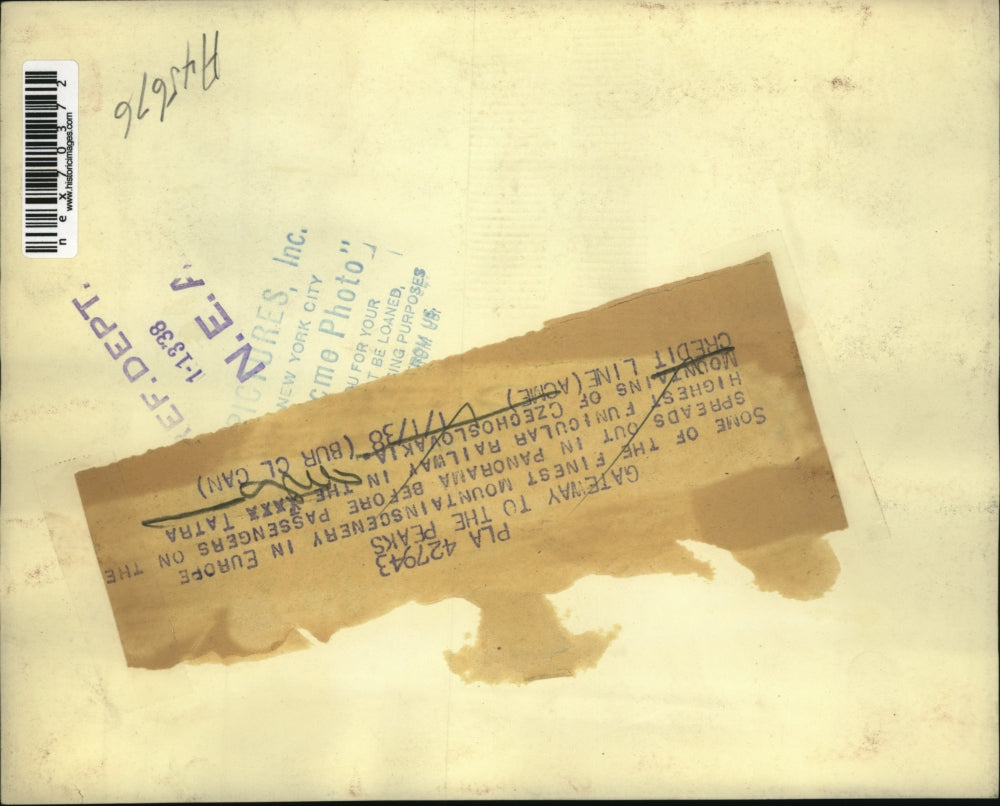 A45676
nex7 0372
www.historicimages.com
REF. DEPT.
1-13'38
N. E. A.
PICTURES, Inc.
NEW YORK CITY
cme Photo"
U FOR YOUR
T BE LOANED,
ING PURPOSES
ROM US.
PLA 427943
GATEWAY TO THE PEAKS
SOME OF THE FINEST MOUNTAINSCENERY IN EUROPE
SPREADS OUT IN PANORAMA BEFORE PASSENGERS ON THE
HIGHEST FUNICULAR RAILWAY IN THE XXXX TATRA
MOUNTAINS OF CZECHOSLOVAKIA
CREDIT LINE (ACME) 1/1/38 (BUR CL CAN)